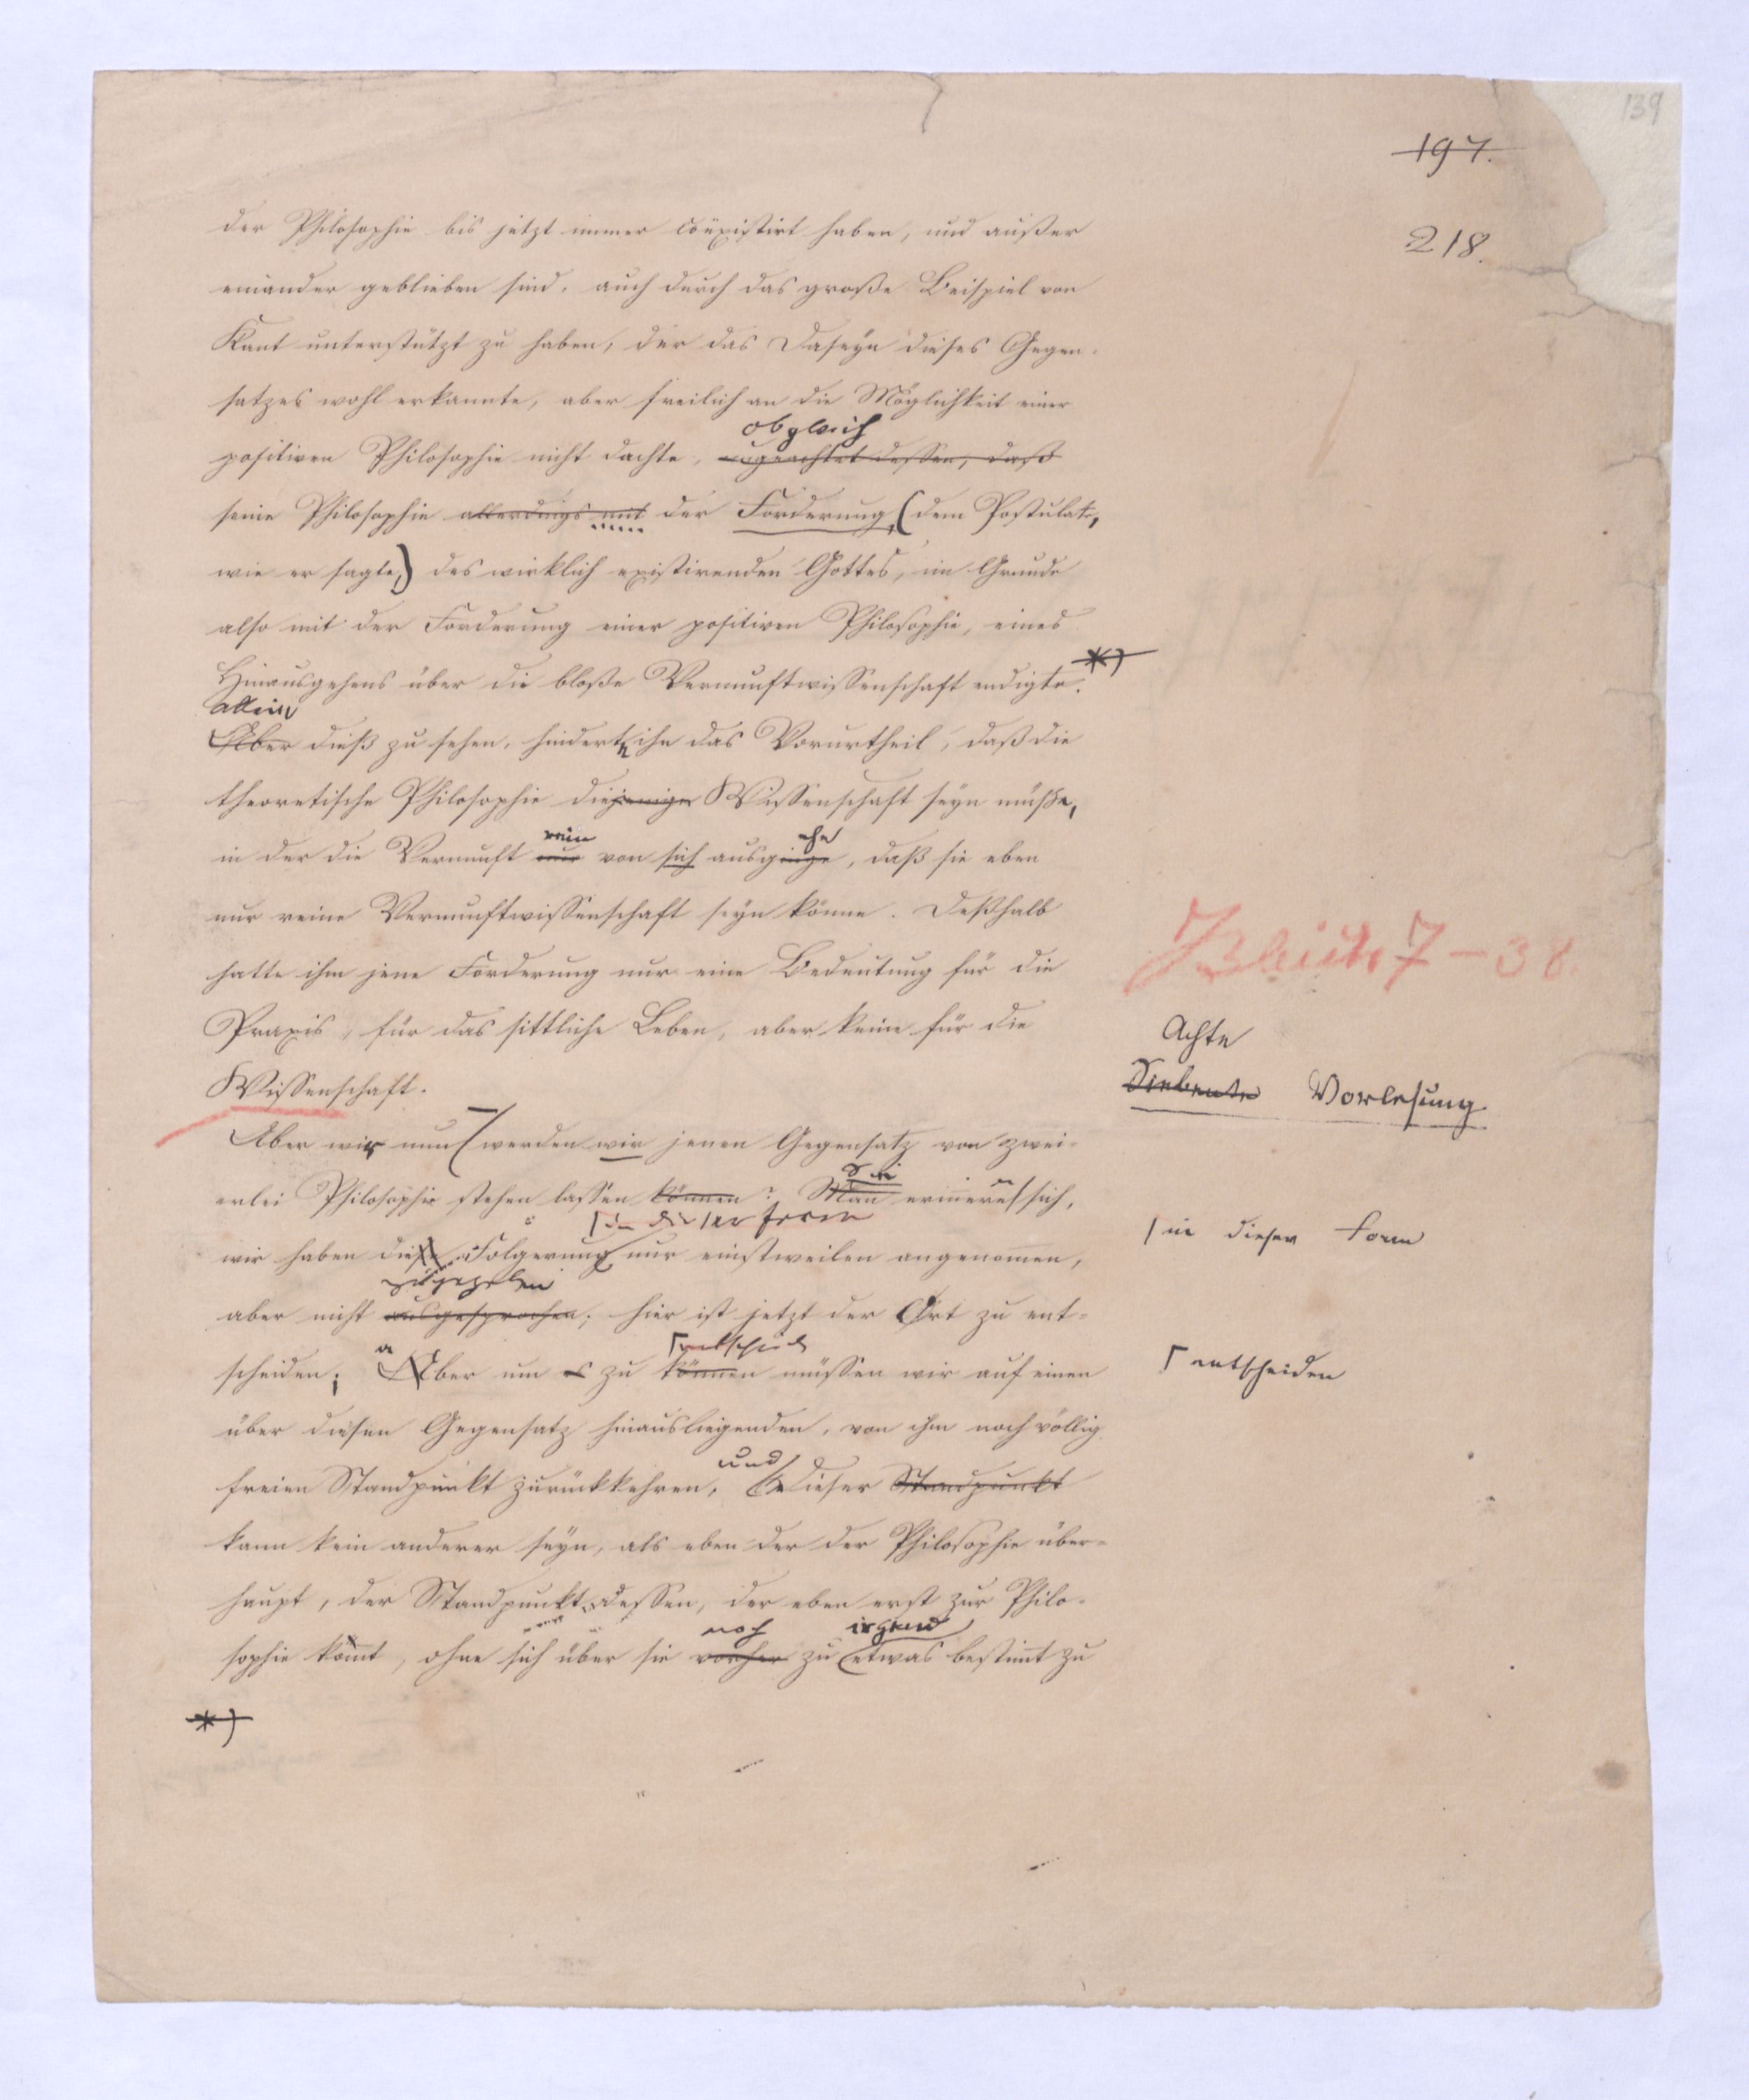 139
197.
218.
der Philosophie bis jetzt immer coëxistirt haben, und außer
einander geblieben sind, auch durch das große Beispiel von
Kant unterstützt zu haben, der das Daseyn dieses Gegen-
satzes wohl erkannte, aber freilich an die Möglichkeit einer
obgleich
positiven Philosophie nicht dachte, ungeachtet dessen, daß
seine Philosophie allerdings mit der Forderung (dem Postulate,
wie er sagte,) des wirklich existirenden Gottes, im Grunde
also mit der Forderung einer positiven Philosophie, eines
Hinausgehens über die bloße Vernunftwissenschaft endigte. *)
Allein
Aber dieß zu sehen, hinderte ihn das Vorurtheil, daß die
theoretische Philosophie diejenige Wissenschaft seyn müsse,
rein ehe
in der die Vernunft nur von sich ausginge, daß sie eben
nur reine Vernunftwissenschaft seyn könne. Deßhalb
hatte ihm jene Forderung nur eine Bedeutung für die
Praxis, für das sittliche Leben, aber keine für die
Wissenschaft.
7-38.
Achte
Siebente Vorlesung
Aber wir nun werden wir jenen Gegensatz von zwei-
Sie
erlei Philosophie stehen lassen können? Man erinnere sich,
in dieser Form
wir haben diese Folgerung nur einstweilen angenommen,
in dieser Form
zugegeben
aber nicht ausgesprochen; hier ist jetzt der Ort zu ent-
entscheiden
scheiden; Aber um es zu können müssen wir auf einen
entscheiden
über diesen Gegensatz hinausliegenden, von ihm noch völlig
und
freien Standpunkt zurückkehren, dieser Standpunkt
kann kein anderer seyn, als eben der der Philosophie über-
haupt, der Standpunkt dessen, der eben erst zur Philo-
noch irgend
sophie kommt, ohne sich über sie vorher zu etwas bestimmt zu
*)